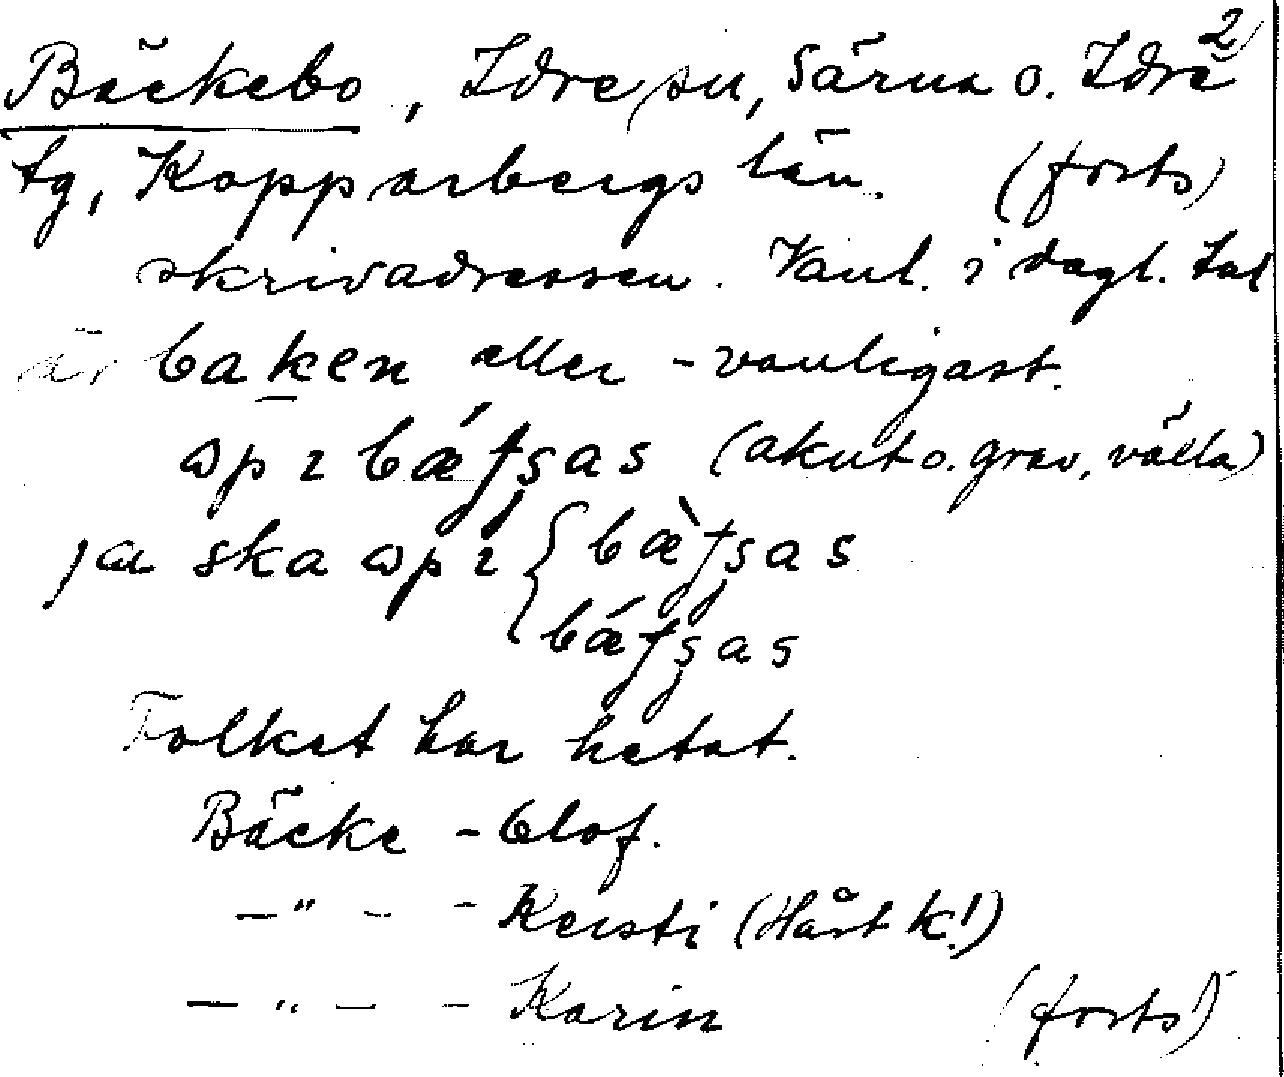 2
Bäckebo, Idre sn, Särna o. Idre
tg, Kopparbergs län. (forts)
skrivadressen. Vanl. i dagl. tal
är baken eller - vanligast.
(akut o. grav, växla)
ska
Folket har hetat.
Bäcke - Olof.
-"- - Kersti (Hårt k!)
-"- - Karin (forts)